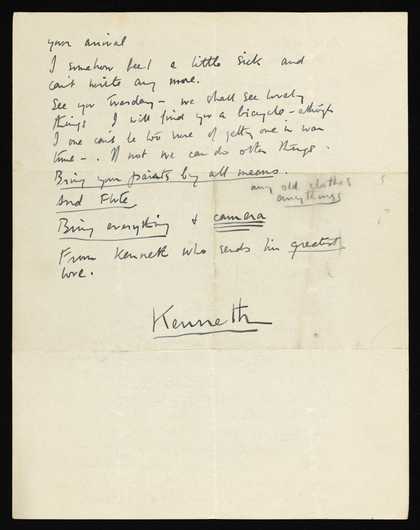 your arrival
I somehow feel a little sick and
can't write any more.
See you Tuesday - we shall see lovely
things I will find you a bicycle - although
I one can't be too sure of getting one in war
time - . If not we can do other things.
Bring your paints by all means.
any old clothes
And Flute
anythings
Bring everything & camera
From Kenneth who sends his greatest
love.
Kenneth